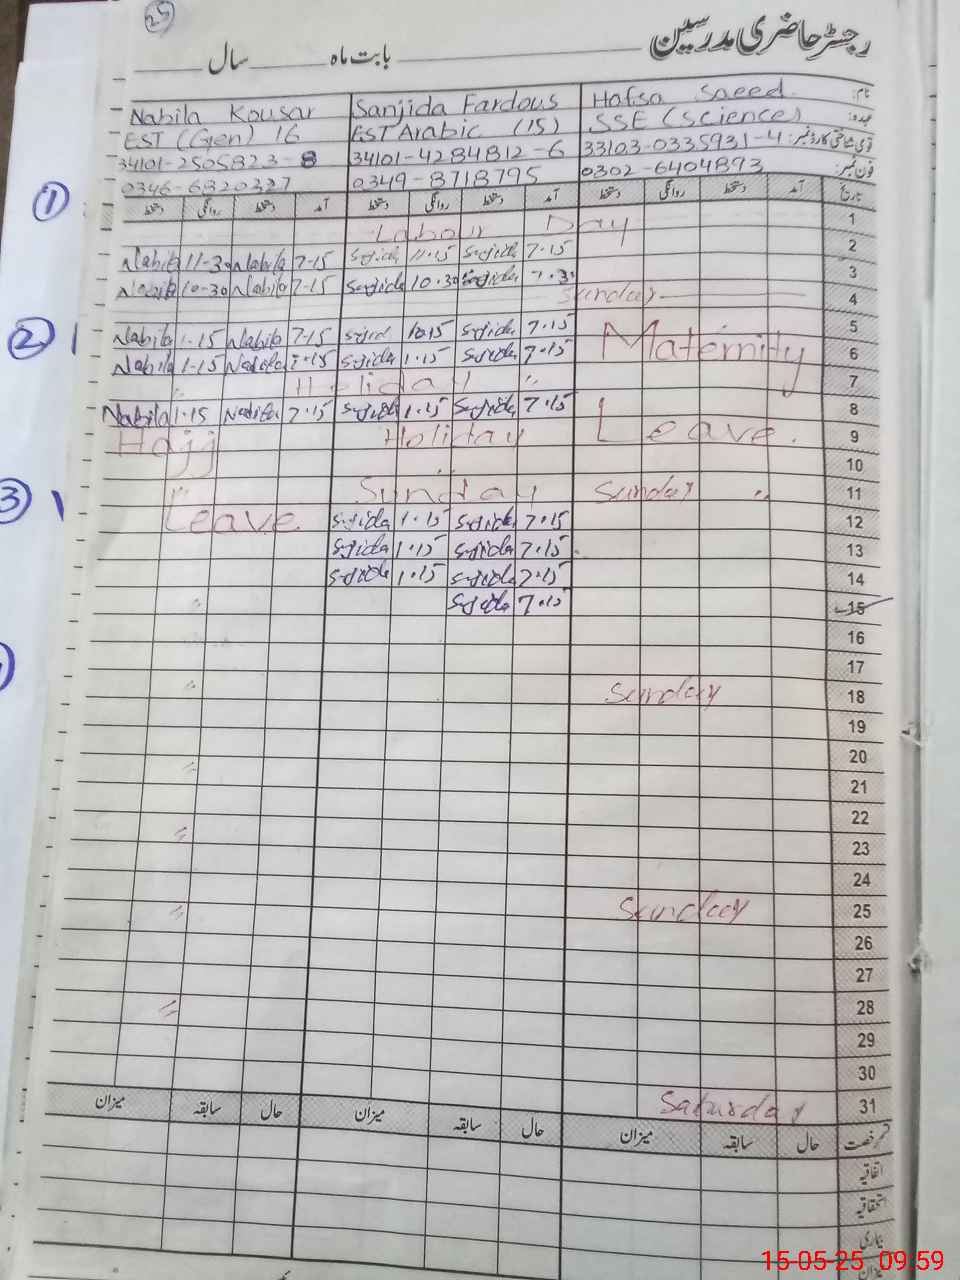 25
رجسٹر حاضری مدرسین
بابت ماہ ______ سال ______
نام: Hafsa Saeed Sanjida Fardous Nabila Kousar
عہدہ: SSE (Science) EST Arabic (15) EST (Gen) 16
قومی شناختی کارڈ نمبر: 33103-0335931-4 34101-4284812-6 34101-2505823-8
فون نمبر: 0302-6404893 0349-8718795 0346-6820327
تاریخ آمد دستخط روانگی دستخط آمد دستخط روانگی دستخط آمد دستخط روانگی دستخط
1 Labour Day
2 Nabila 11-30 Nabila 7-15 Sajida 11.15 Sajida 7.15
3 Nabila 10-30 Nabila 7-15 Sajida 10.30 Sajida
4 Sunday
5 Nabila 1-15 Nabila 7-15 Sajida 10.15 Sajida 7.15
6 Nabila 1-15 Nabila 7.15 Sajida 1.15 Sajida 7.15 Maternity
7 Holiday
8 Nabila 1.15 Nabila 7.15 Sajida 1.15 Sajida 7.15
9 Hajj Holiday Leave.
10
11 Sunday Sunday
12 Leave. Sajida 1.15 Sajida 7.15
13 Sajida 1.15 Sajida 7.15
14 Sajida 1.15 Sajida 7.15
15 Sajida 7.15
16
17
18 Sunday
19
20
21
22
23
24
25 Sunday
26
27
28
29
30
31 Saturday
قسم رخصت حال سابقہ میزان حال سابقہ میزان حال سابقہ میزان
اتفاقیہ
استحقاقیہ
بیماری
میزان
1
2
3
15-05-25 09:59